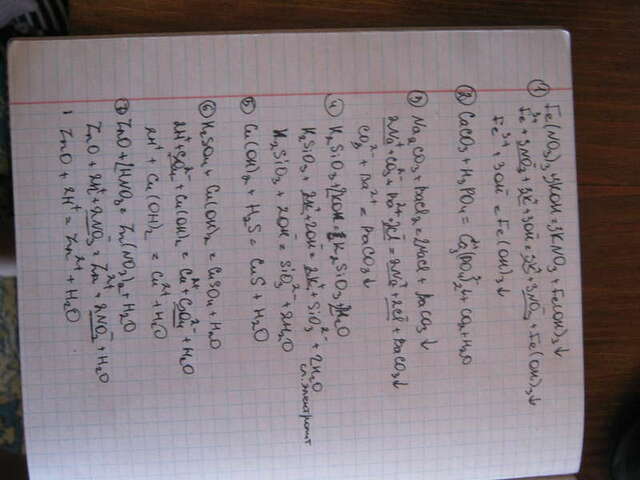 ① Fe(NO₃)₃+3KOH=3KNO₃+Fe(OH)₃↓
Fe³⁺+3NO₃⁻+3K⁺+3OH⁻=3K⁺+3NO₃⁻+Fe(OH)₃↓
Fe³⁺+3OH⁻=Fe(OH)₃↓
② CaCO₃+H₃PO₄=Ca₃(PO₄)₂+CO₂+H₂O
③ Na₂CO₃+BaCl₂=2NaCl+BaCO₃↓
2Na⁺+CO₃²⁻+Ba²⁺+2Cl⁻=2Na⁺+2Cl⁻+BaCO₃↓
CO₃²⁻+Ba²⁺=BaCO₃↓
④ H₂SiO₃+2KOH=K₂SiO₃+2H₂O
H₂SiO₃+2K⁺+2OH⁻=2K⁺+SiO₃²⁻+2H₂O
сл. электролит
H₂SiO₃+2OH⁻=SiO₃²⁻+2H₂O
⑤ Cu(OH)₂+H₂S=CuS+H₂O
⑥ H₂SO₄+Cu(OH)₂=CuSO₄+H₂O
2H⁺+SO₄²⁻+Cu(OH)₂=Cu²⁺+SO₄²⁻+H₂O
2H⁺+Cu(OH)₂=Cu²⁺+H₂O
⑦ ZnO+2HNO₃=Zn(NO₃)₂+H₂O
ZnO+2H⁺+2NO₃⁻=Zn²⁺+2NO₃⁻+H₂O
ZnO+2H⁺=Zn²⁺+H₂O